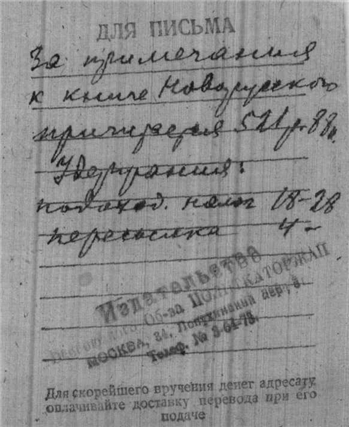 ДЛЯ ПИСЬМА
За примечания
к книге Новорусского
причитается 521 р. 88 к.
Удержания:
подоход. налог 18-28
пересылка 4 -
Издательство
Об-ва ПОЛИТКАТОРЖАН
МОСКВА, 34, Лопухинский пер., 5.
Телеф. № 3-64-73.
Для скорейшего вручения денег адресату,
оплачивайте доставку перевода при его
подаче